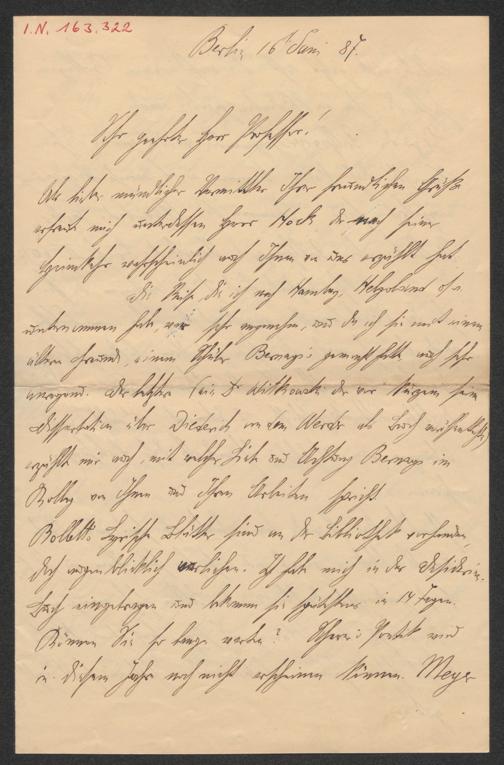 I.N. 163.322
Berlin 16 Juni 87.
Sehr geehrter Herr Professor!
Als lieber mündlicher Vermittler Ihrer freundlichen Grüße
erfreut mich unterdessen Herr Hock der nach seiner
Heimkehr wahrscheinlich auch Ihnen von uns erzählt hat
Die Reise die ich nach Hamburg, Helgoland
unternommen habe, war sehr angenehm, und da ich sie mit einem
ältern Freunde, einem Schüler Bernays gemacht habe auch sehr
anregend. Der letztere (ein Dr Witkowski der vor kurzem seine
Dissertation über Diederich von dem Werder als Buch veröffentlichte)
erzählte mir auch, mit welcher Liebe und Achtung Bernays im
Kolleg von Ihnen und Ihren Arbeiten spricht.
Lyrische Blätter sind an der Bibliothek vorhanden,
doch augenblicklich verliehen. Ich habe mich in das
Buch eingetragen und bekomme sie spätestens in 14 Tagen.
Können Sie so lange warten? Scherers Poetik wird
in diesem Jahr noch nicht erscheinen können. Meyer